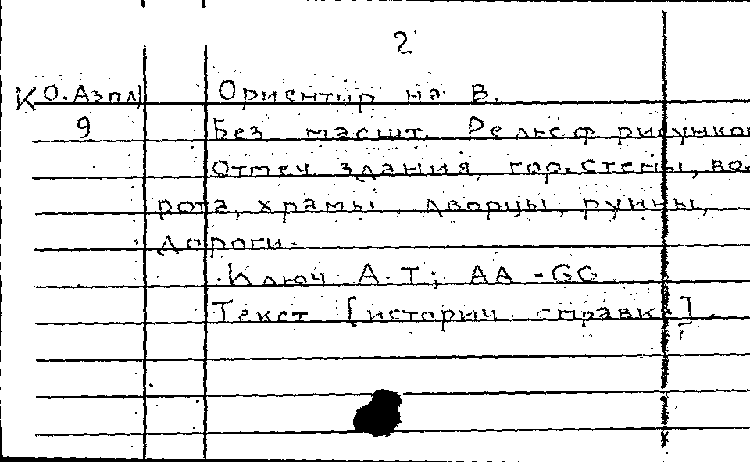 2
К О. Азпл Ориентир на В.
9 Без масшт. Рельеф рисунком
Отмеч здания, гор. стены, во-
рота, храмы, дворцы, руины,
дороги.
Ключ А-Т; АА-GG
Текст [историч справка].